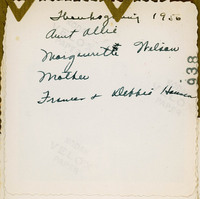 Thanksgiving 1956
Aunt Allie
Marguerette Wilson
Mother
Frances & Debbie Hansen
938